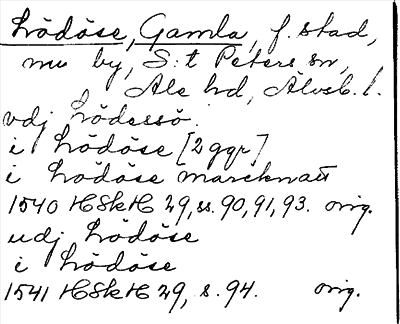 Lödöse, Gamla, f. stad,
nu by, S:t Peters sn,
Ale hd, Älvsb. l.
vdj Lödessö
i Lödöse [2 ggr]
i Lödöse marcknatt
1540 HSkH 29, ss. 90, 91, 93. orig.
udj Lödöse
i Lödöse
1541 HSkH 29, s. 94. orig.